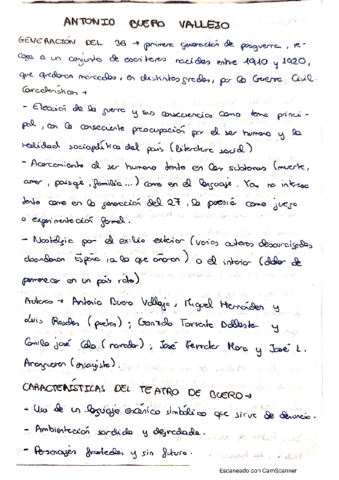 ANTONIO BUERO VALLEJO
GENERACIÓN DEL 36 → primera generación de posguerra, re-
coge a un conjunto de escritores nacidos entre 1910 y 1920,
que quedaron marcados, en distintos grados, por la Guerra Civil.
Características →
- Elección de la guerra y sus consecuencias como tema princi-
pal, con la consecuente preocupación por el ser humano y la
realidad sociopolítica del país (literatura social)
- Acercamiento al ser humano tanto en los subtemas (muerte,
amor, paisaje, familia...) como en el lenguaje. Ya no interesa
tanto como en la generación del 27, la poesía como juego
o experimentación formal.
- Nostalgia por el exilio exterior (varios autores desarraigados
abandonan España a la que añoran) o el interior (dolor de
permanecer en un país roto)
Autores → Antonio Buero Vallejo, Miguel Hernández y
Luis Rosales (poetas); Gonzalo Torrente Ballester y
Camilo José Cela (narrador); José Ferrater Mora y José L.
Aranguren (ensayista).
CARACTERÍSTICAS DEL TEATRO DE BUERO →
- Uso de un lenguaje escénico simbólico que sirve de denuncia.
- Ambientación sórdida y degradada.
- Personajes frustrados y sin futuro.
Escaneado con CamScanner